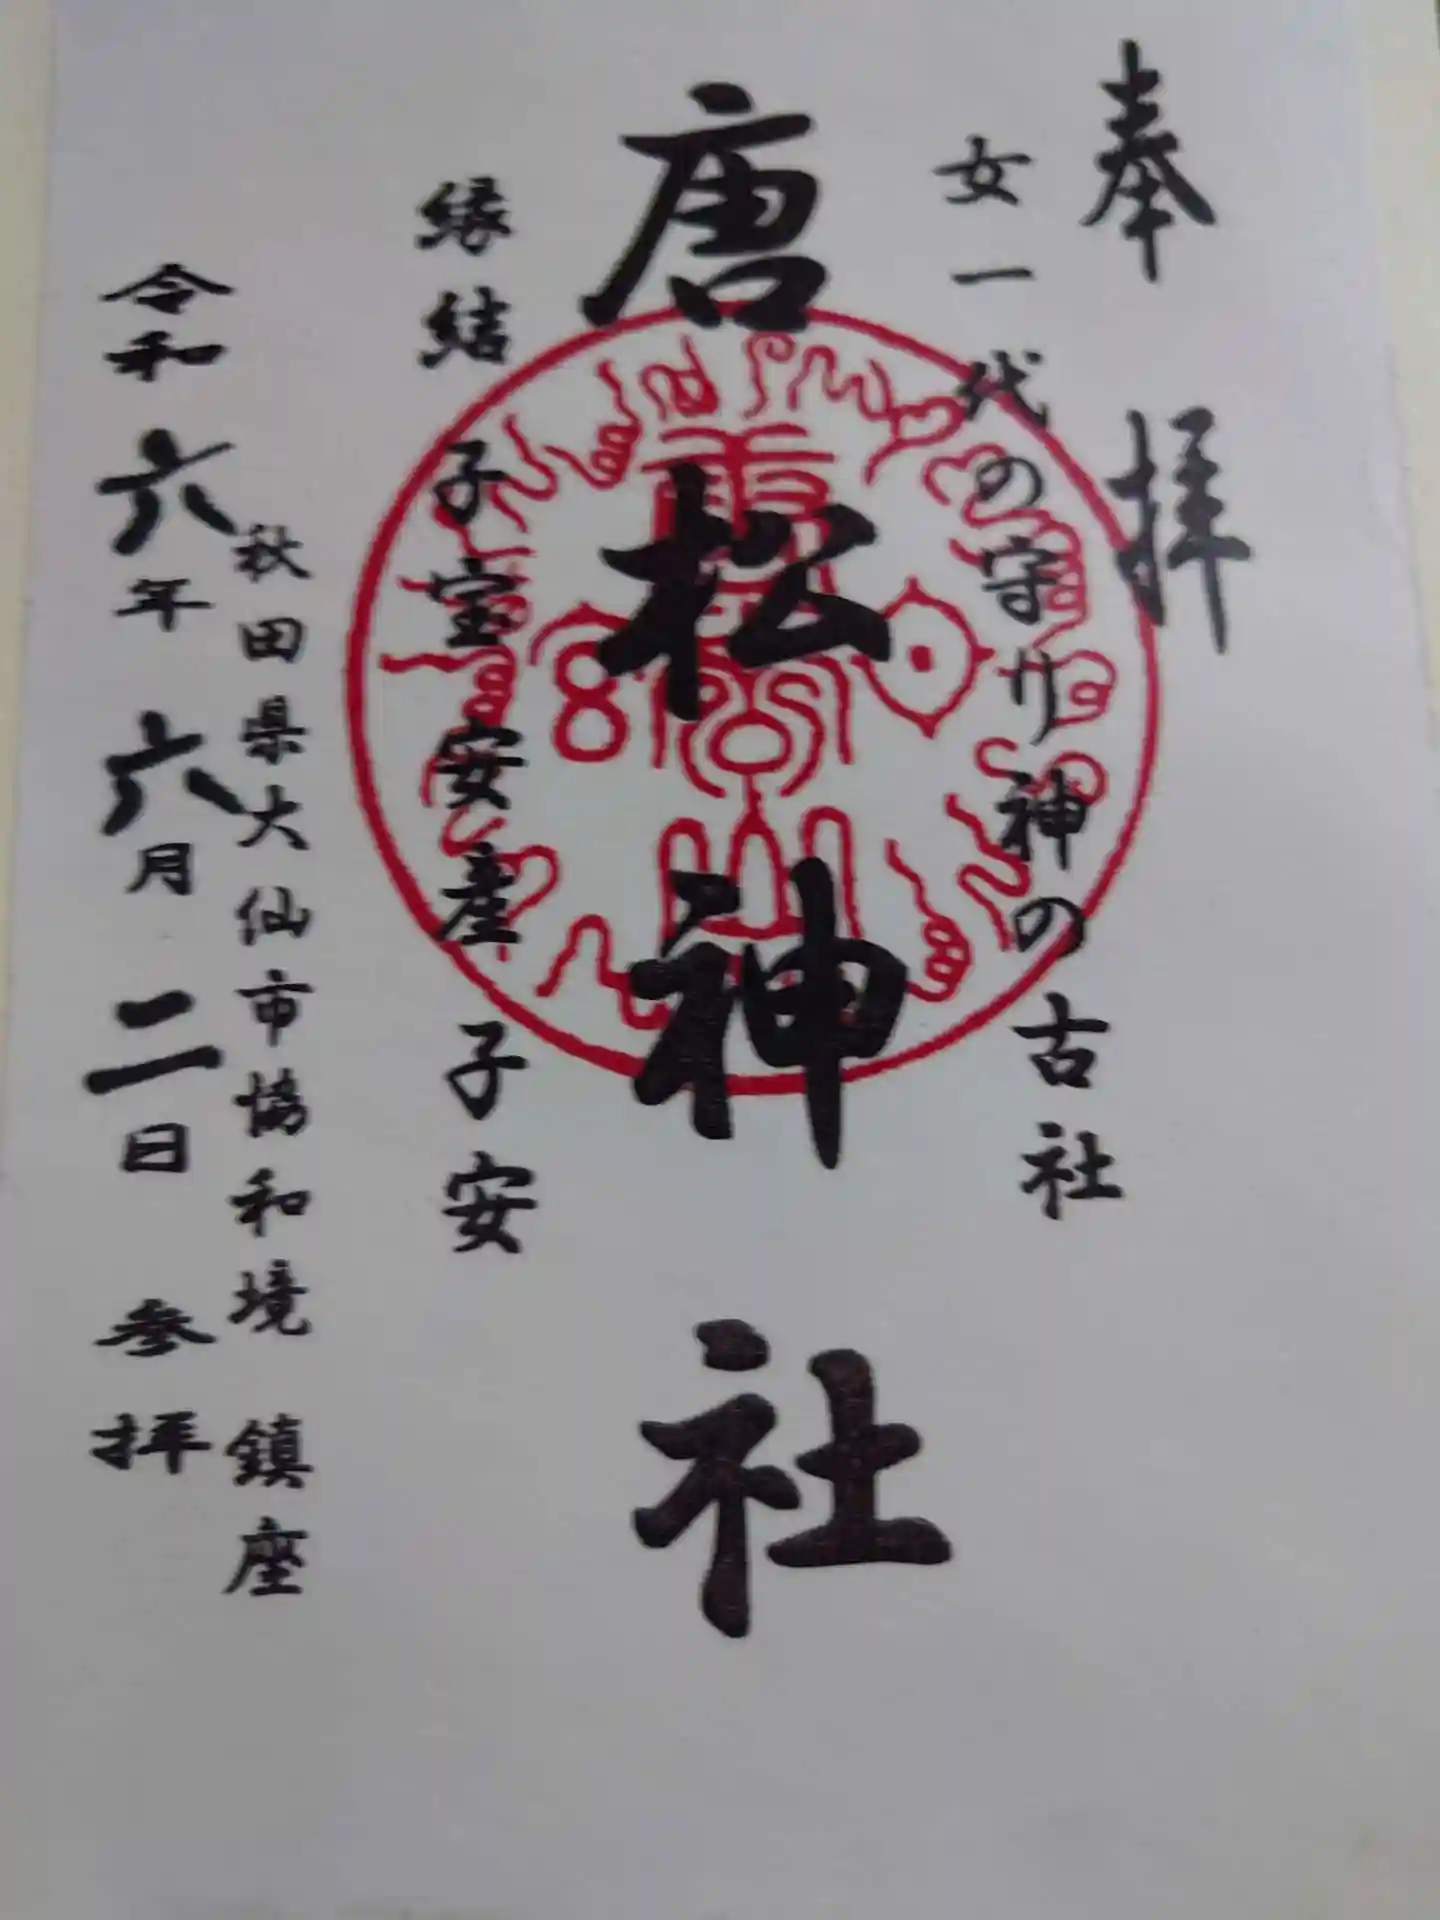 奉拝
女一代の守り神の古社
唐松神社
縁結 子宝 安産 子安
秋田県大仙市協和境 鎮座
令和六年六月二日 参拝